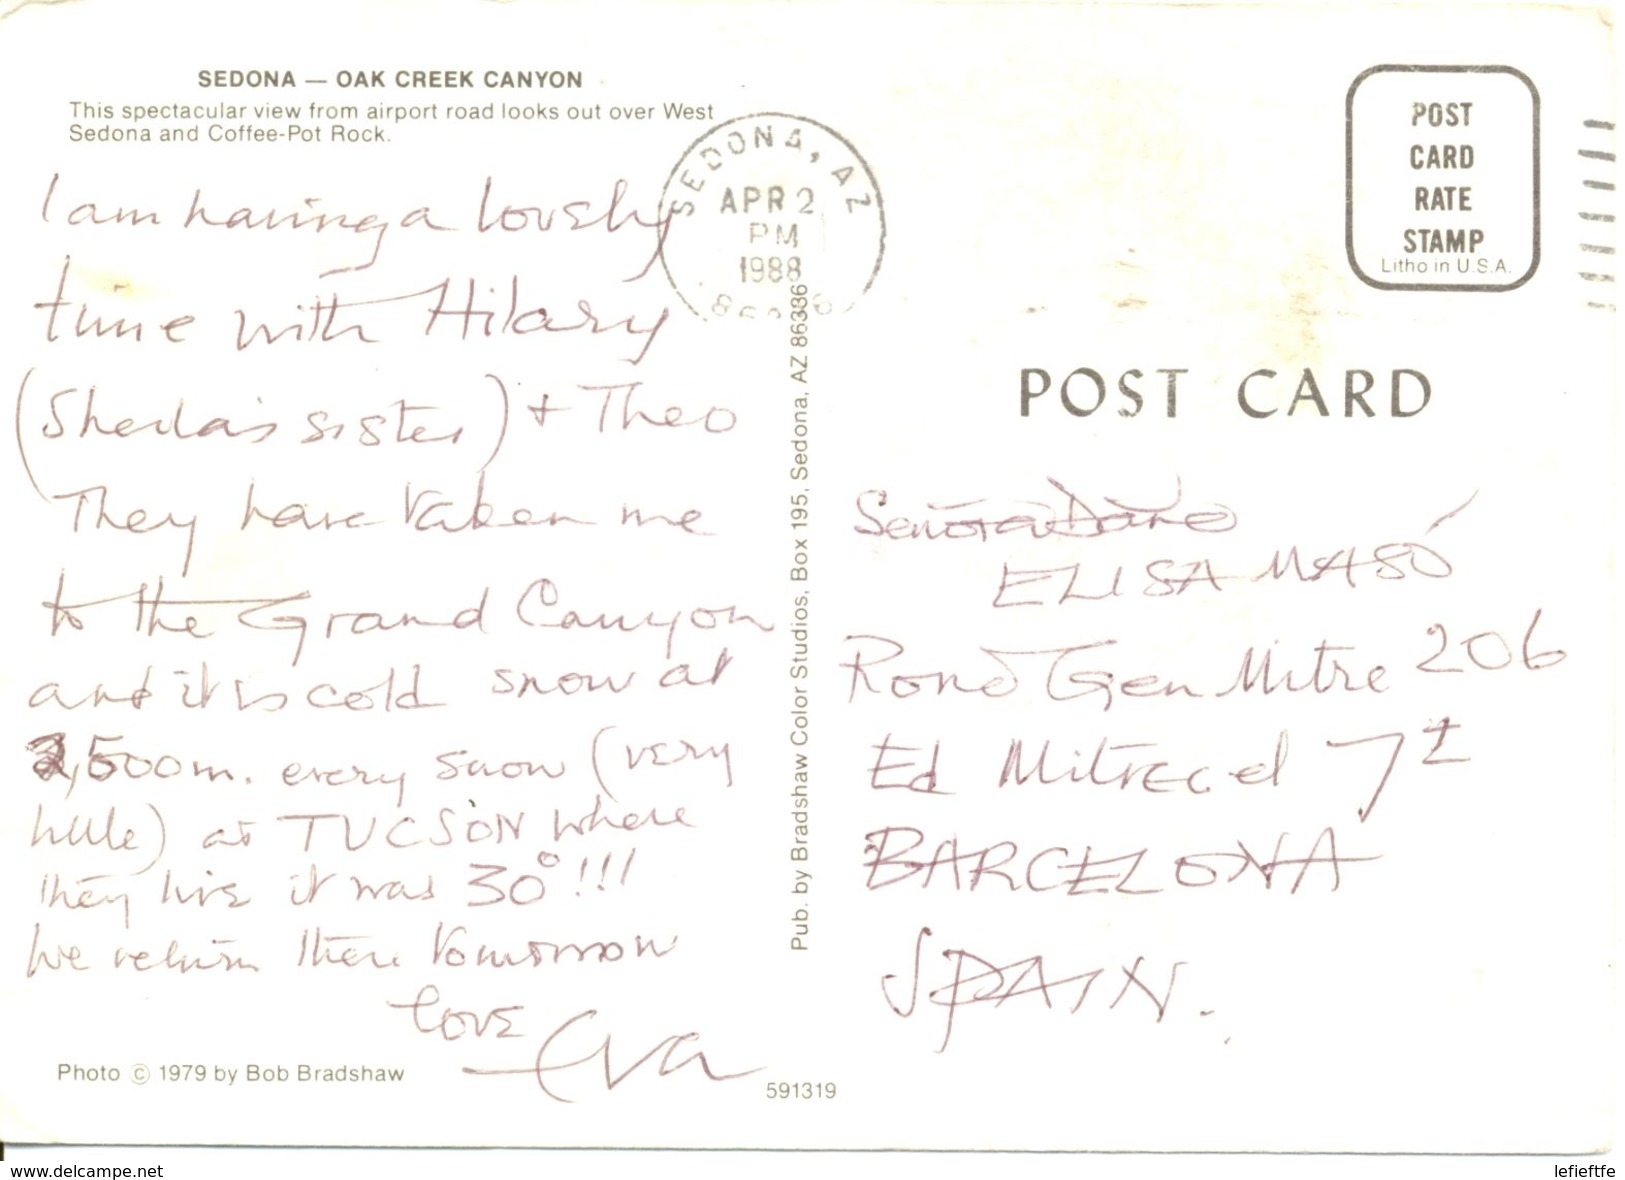 SEDONA — OAK CREEK CANYON
This spectacular view from airport road looks out over West
Sedona and Coffee-Pot Rock.
I am having a lovely
time with Hilary
(Sheila's sister) + Theo
They have taken me
to the Grand Canyon
and it is cold snow at
2,500m. every snow (very
little) at TUCSON where
they live it was 30°!!!
We return there tomorrow
love Eva
Photo © 1979 by Bob Bradshaw
591319
Pub. by Bradshaw Color Studios, Box 195, Sedona, AZ 86336
SEDONA, AZ
APR 2
PM
1988
POST
CARD
RATE
STAMP
Litho in U.S.A.
POST CARD
Señora
ELISA MASÓ
Rond Gen Mitre 206
Ed Mitre
BARCELONA
SPAIN.
www.delcampe.net
lefieftfe